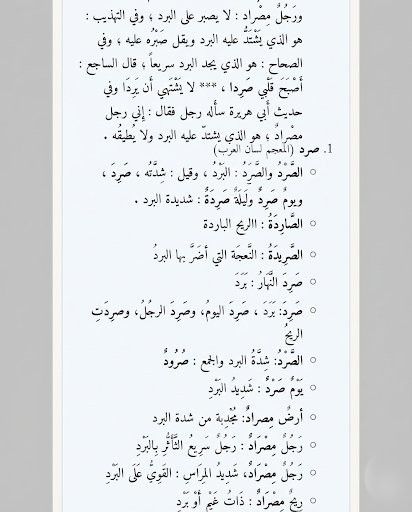 ورَجُلٌ مِصْراد : لا يصبر على البرد ؛ وفي التهذيب :
هو الذي يَشْتَدُّ عليه البرد ويقل صَبْرُه عليه ؛ وفي
الصحاح : هو الذي يجد البرد سريعاً ؛ قال الساجع :
أَصْبَحَ قَلْبي صَرِدا ، *** لا يَشْتَهي أَن يَرِدَا وفي
حديث أَبي هريرة سأَله رجل فقال : إِني رجل
مصْرادٌ ؛ هو الذي يشتدّ عليه البرد ولا يُطيقُه .
1. صرد (المعجم لسان العرب)
○ الصَّرْدُ والصَّرَدُ : البَرْدُ ، وقيل : شِدَّتُه ، صَرِدَ ،
ويومٌ صَرِدٌ ولَيلَةٌ صَرِدَةٌ : شديدة البرد .
○ الصَّارِدَةُ : االريح الباردة
○ الصَّرِيدَةُ : النَّعجَة التي أضَرَّ بها البردُ
○ صَرِدَ النَّهَارُ : بَرَدَ
○ صَرِدَ: بَرَدَ ، صَرِدَ اليومُ، وصَرِدَ الرجلُ، وصرِدَتِ
الريحُ
○ الصَّرْدُ: شِدَّةُ البرد والجمع : صُرُودٌ
○ يَوْمٌ صَرْدٌ : شَدِيدُ البَرْدِ
○ أرضٌ مِصرادٌ: مُجْدِبة من شدة البرد
○ رَجُلٌ مِصْرَادٌ : رَجُلٌ سَرِيعُ التَّأَثُّرِ بِالبَرْدِ
○ رَجُلٌ مِصْرَادٌ، شَدِيدُ المِرَاسِ : القَوِيُّ عَلَى البَرْدِ
○ رِيحٌ مِصْرَادٌ : ذَاتُ غَيْمٍ أَوْ بَرْدٍ